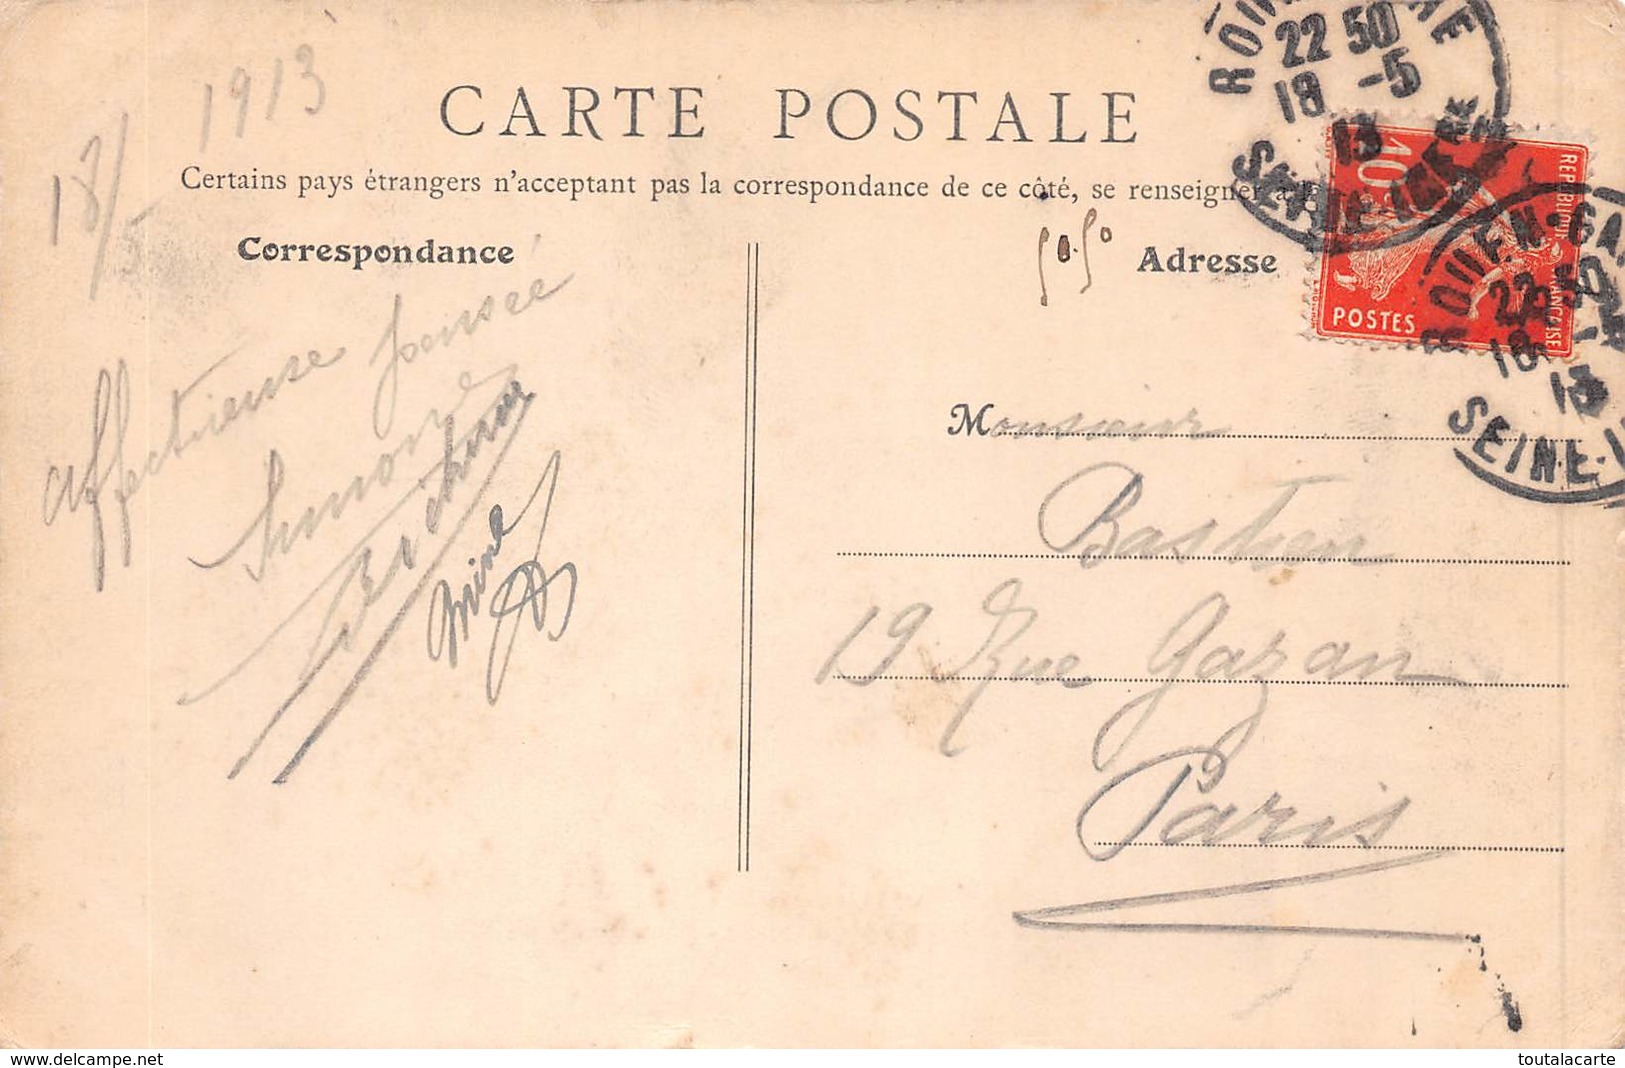 18/5 1913
CARTE POSTALE
Certains pays étrangers n'acceptant pas la correspondance de ce côté, se renseigner à
Correspondance
Adresse
50.50
Affectueuse pensée
Simone
Monsieur
Bastien
19 Rue Gazan
Paris
22 50
18 -5
13
SEINE-INFRE
10
REPUBLIQUE FRANÇAISE
POSTES
ROUEN-GARE
22 50
18 -5
13
SEINE-I
www.delcampe.net
toutalacarte